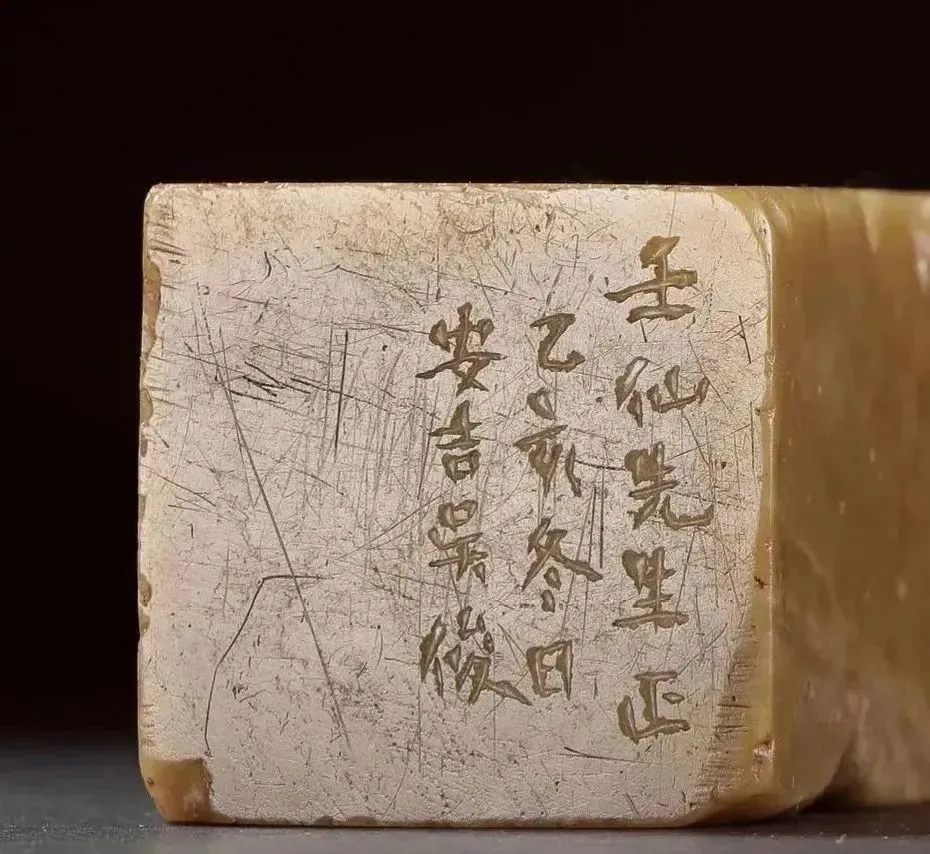 壬仙先生正
乙亥冬日
安吉吴俊